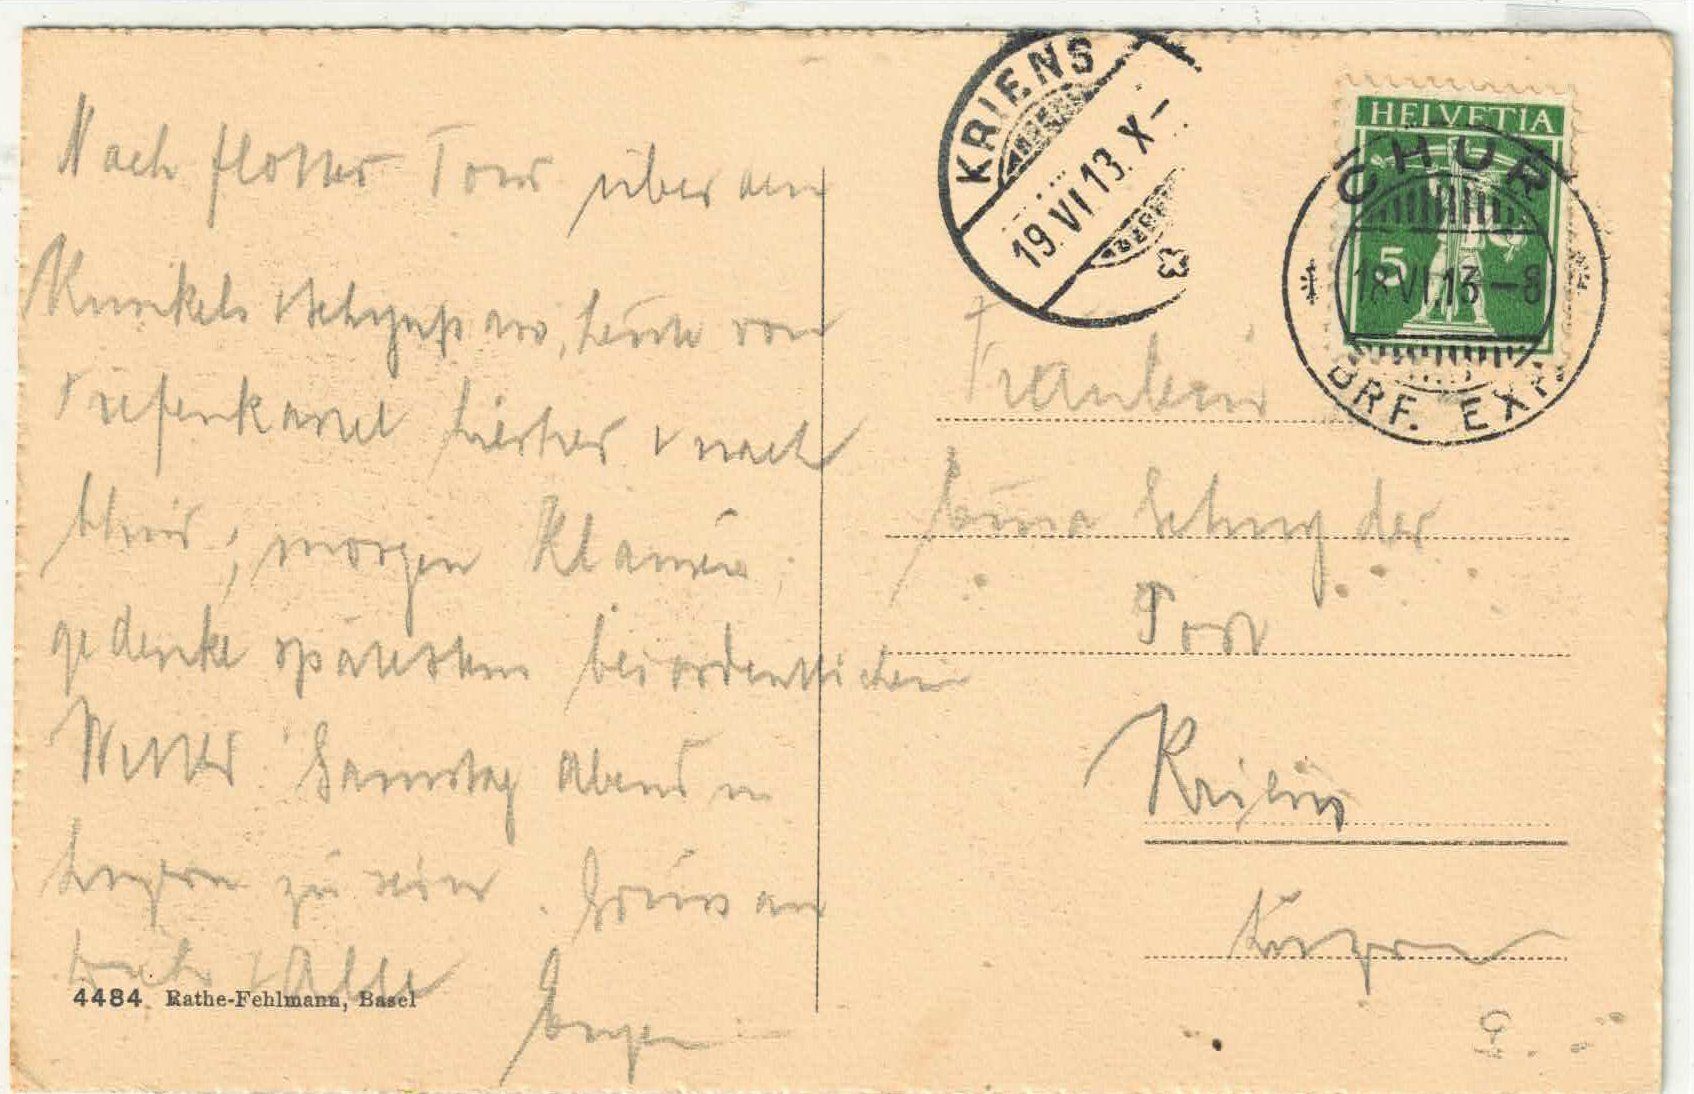 Nach flotter Tour über den
Kunkels heute von
hierher & nach
Chur, morgen
gedenke spätestens bei ordentlichem
Wetter Samstag Abend in
Luzern zu sein. Gruss an
& Alle
Eugen
4484 Rathe-Fehlmann, Basel
KRIENS
19.VI.13.X-
HELVETIA
5
CHUR
18.VI.13-8
BRF. EXP.
Fräulein
Schnyder
Post
Kriens
Luzern